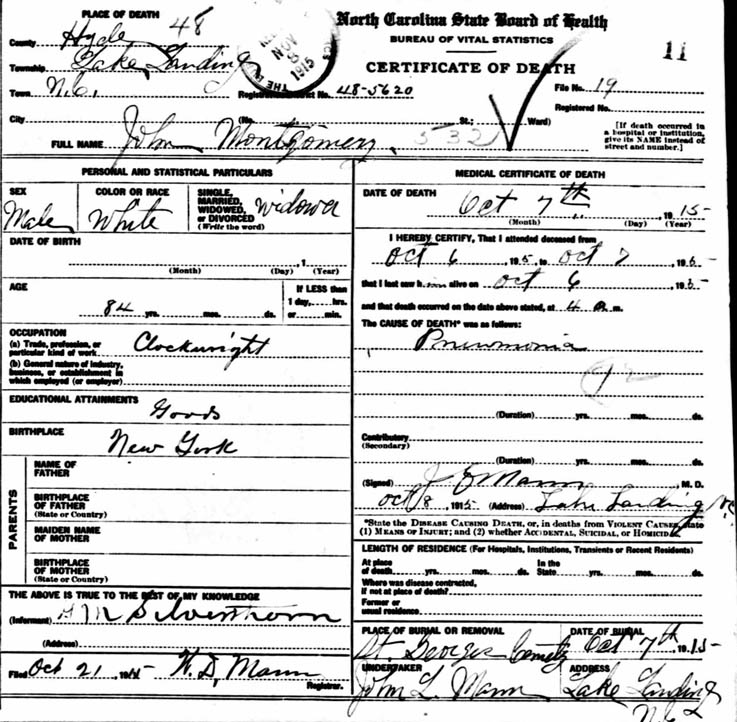 PLACE OF DEATH 48
North Carolina State Board of Health
BUREAU OF VITAL STATISTICS
CERTIFICATE OF DEATH
11
County Hyde
Township Lake Landing
Town N.C.
NOV 1915
THE
48-5620
File No. 19
Registered No.
City (No. St.; Ward)
[If death occurred in a hospital or institution, give its NAME instead of street and number.]
FULL NAME John Montgomery 532
PERSONAL AND STATISTICAL PARTICULARS
SEX Male
COLOR OR RACE White
SINGLE, MARRIED, WIDOWED, or DIVORCED (Write the word) Widower
DATE OF BIRTH
, 1
(Month) (Day) (Year)
AGE
84 yrs. mos. ds.
If LESS than 1 day, hrs. or min.
OCCUPATION
(a) Trade, profession, or particular kind of work Clockwright
(b) General nature of industry, business, or establishment in which employed (or employer)
EDUCATIONAL ATTAINMENTS
Good
BIRTHPLACE
New York
PARENTS
NAME OF FATHER
BIRTHPLACE OF FATHER (State or Country)
MAIDEN NAME OF MOTHER
BIRTHPLACE OF MOTHER (State or Country)
THE ABOVE IS TRUE TO THE BEST OF MY KNOWLEDGE
(Informant) M Silverthorn
(Address)
Filed Oct 21, 191 W. D. Mann
Registrar.
MEDICAL CERTIFICATE OF DEATH
DATE OF DEATH
Oct 7th, 1915
(Month) (Day) (Year)
I HEREBY CERTIFY, That I attended deceased from
Oct 6, 1915, to Oct 7, 1915
that I last saw him alive on Oct 6 1915
and that death occurred on the date above stated, at 4 a. m.
The CAUSE OF DEATH* was as follows:
Pneumonia
92
(Duration) yrs. mos. ds.
Contributory
(Secondary)
(Duration) yrs. mos. ds.
(Signed) Mann M. D.
Oct 8, 1915 (Address) Lake Landing N.C.
*State the DISEASE CAUSING DEATH, or, in deaths from VIOLENT CAUSES, state
(1) MEANS OF INJURY; and (2) whether ACCIDENTAL, SUICIDAL, or HOMICIDAL
LENGTH OF RESIDENCE (For Hospitals, Institutions, Transients or Recent Residents)
At place of death yrs. mos. ds. In the State yrs. mos. ds.
Where was disease contracted, if not at place of death?
Former or usual residence
PLACE OF BURIAL OR REMOVAL
St. Georges Cemetery
DATE OF BURIAL
Oct 7th, 1915
UNDERTAKER
John L. Mann
ADDRESS
Lake Landing
N.C.